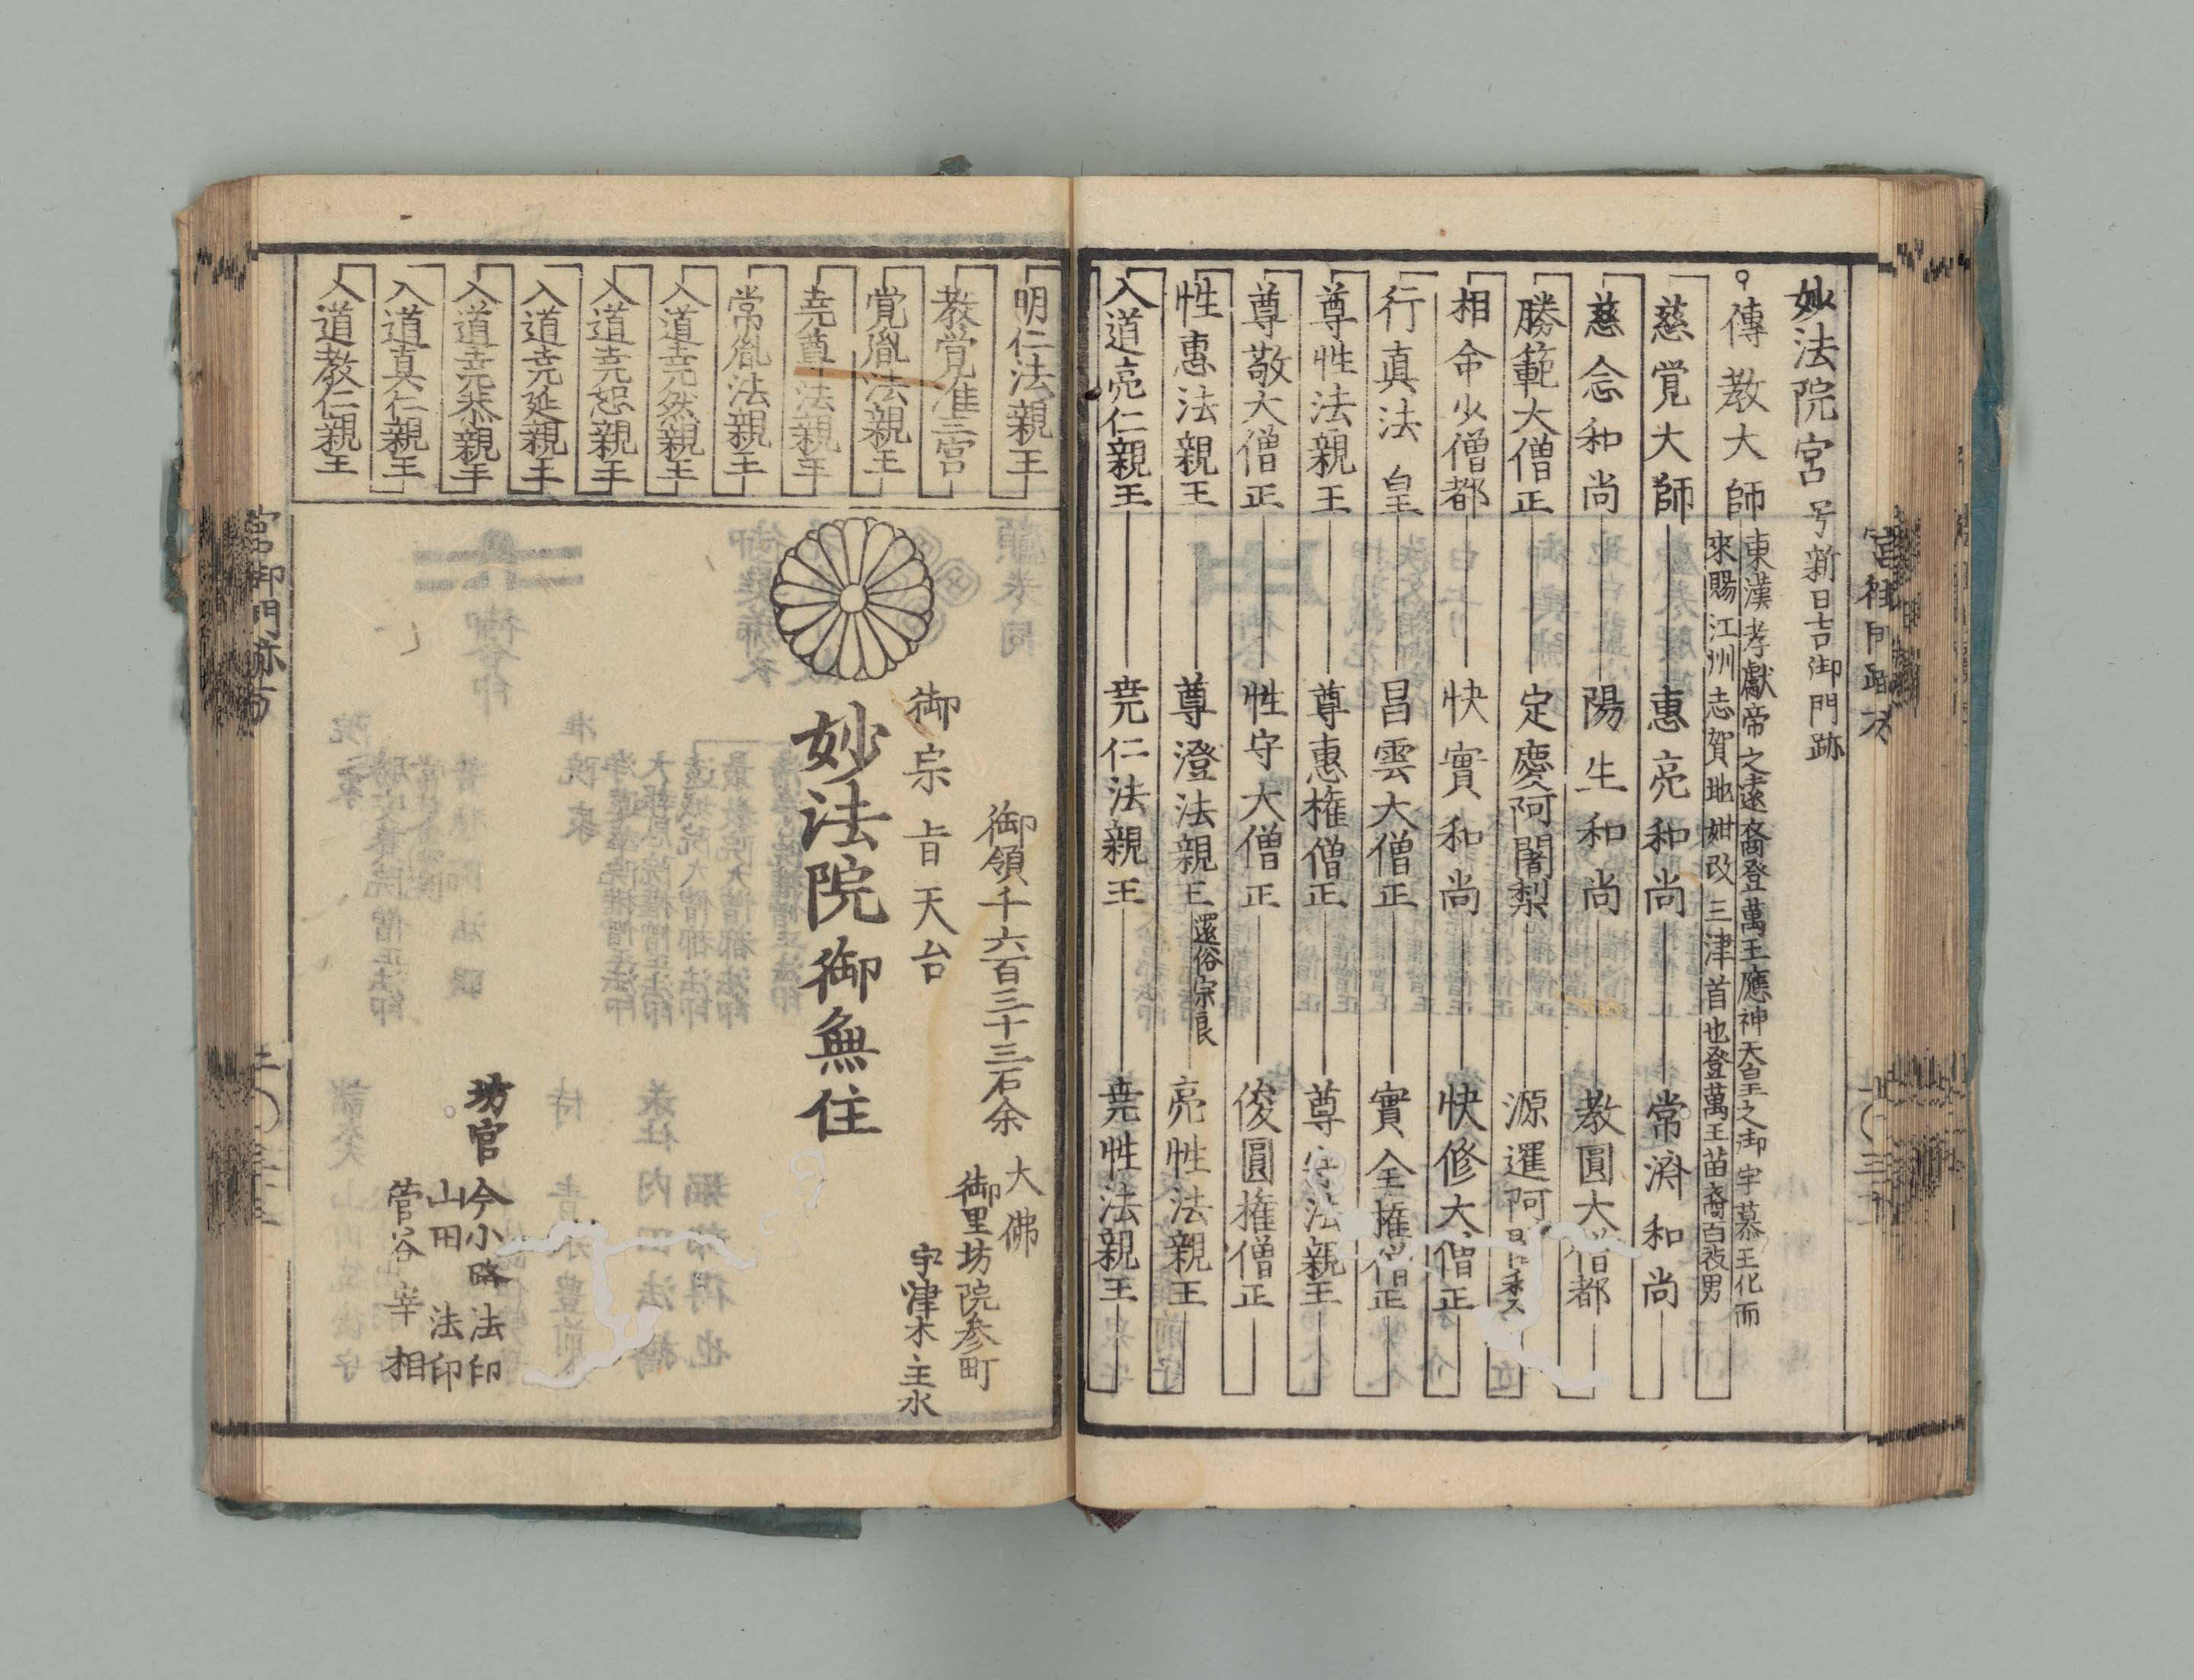 妙法院宮 号新日吉御門跡
傳教大師 東漢孝獻帝之遠裔登萬王應神天皇之御宇慕王化而
來賜江州志賀地姓改三津首也登萬王苗裔百枝男
慈覚大師 惠亮和尚 常濟和尚
慈念和尚 陽生和尚 教圓大僧都
勝範大僧正 定慶阿闍梨 源暹阿闍梨
相命少僧都 快實和尚 快修大僧正
行真法皇 昌雲大僧正 實全権僧正
尊性法親王 尊惠権僧正 尊守法親王
尊敬大僧正 性守大僧正 俊圓権僧正
性惠法親王 尊澄法親王 還俗宗良 亮性法親王
入道亮仁親王 尭仁法親王 尭性法親王
明仁法親王
教覚准三宮
覚胤法親王
尭尊法親王
常胤法親王
入道尭然親王
入道尭恕親王
入道尭延親王
入道尭恭親王
入道真仁親王
入道教仁親王
大佛
御領千六百三十三石余
御里坊院参町
宇津木主水
御宗旨天台
妙法院御無住
坊官 今小路法印
山田法印
菅谷宰相
宮御門跡方